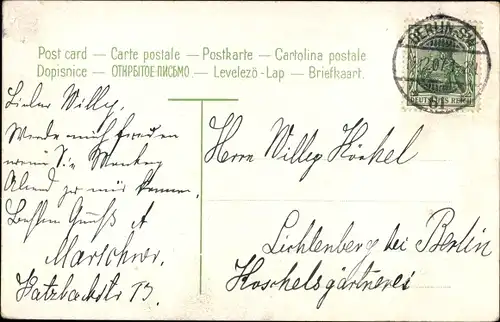 Post card — Carte postale — Postkarte — Cartolina postale
Dopisnice — ОТКРЫТОЕ ПИСЬМО. — Levelező-Lap — Briefkaart.
BERLIN SW
DEUTSCHES REICH
Lieber Willy,
Werde mich freuen
wenn Sie Montag
Abend zu mir kommen.
Besten Gruß A
Marschner.
Katzbachstr 13.
Herrn Willy Höckel
Lichtenberg bei Berlin
Koschelsgärtnerei